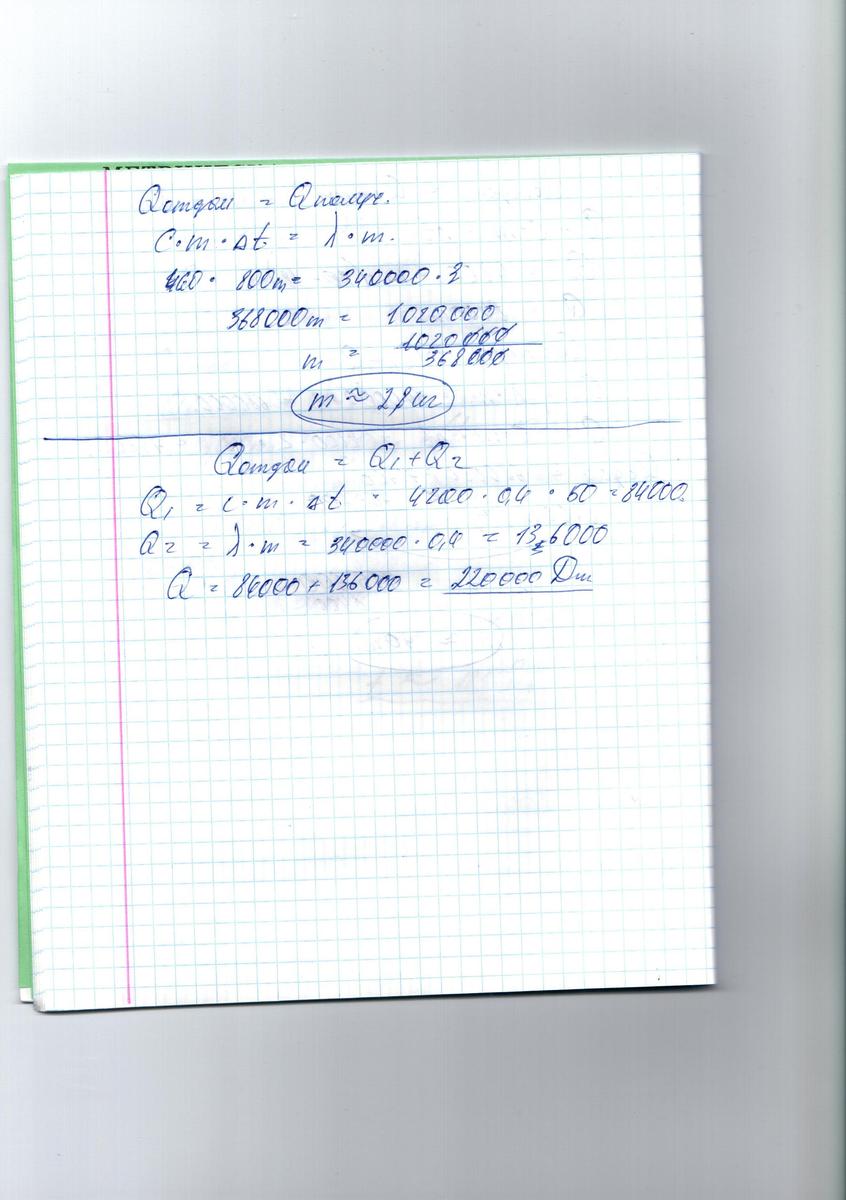 Qотдан = Qполуч.
C·m·Δt = λ·m.
460· 800m= 340000·3
368000m = 1020000
m = 1020000/368000
m ≈ 2,8 кг
Qотдан = Q1+Q2
Q1 = c·m·Δt = 4200·0,4·50 = 84000.
Q2 = λ·m = 340000·0,4 = 136000
Q = 84000 + 136000 = 220000 Дж